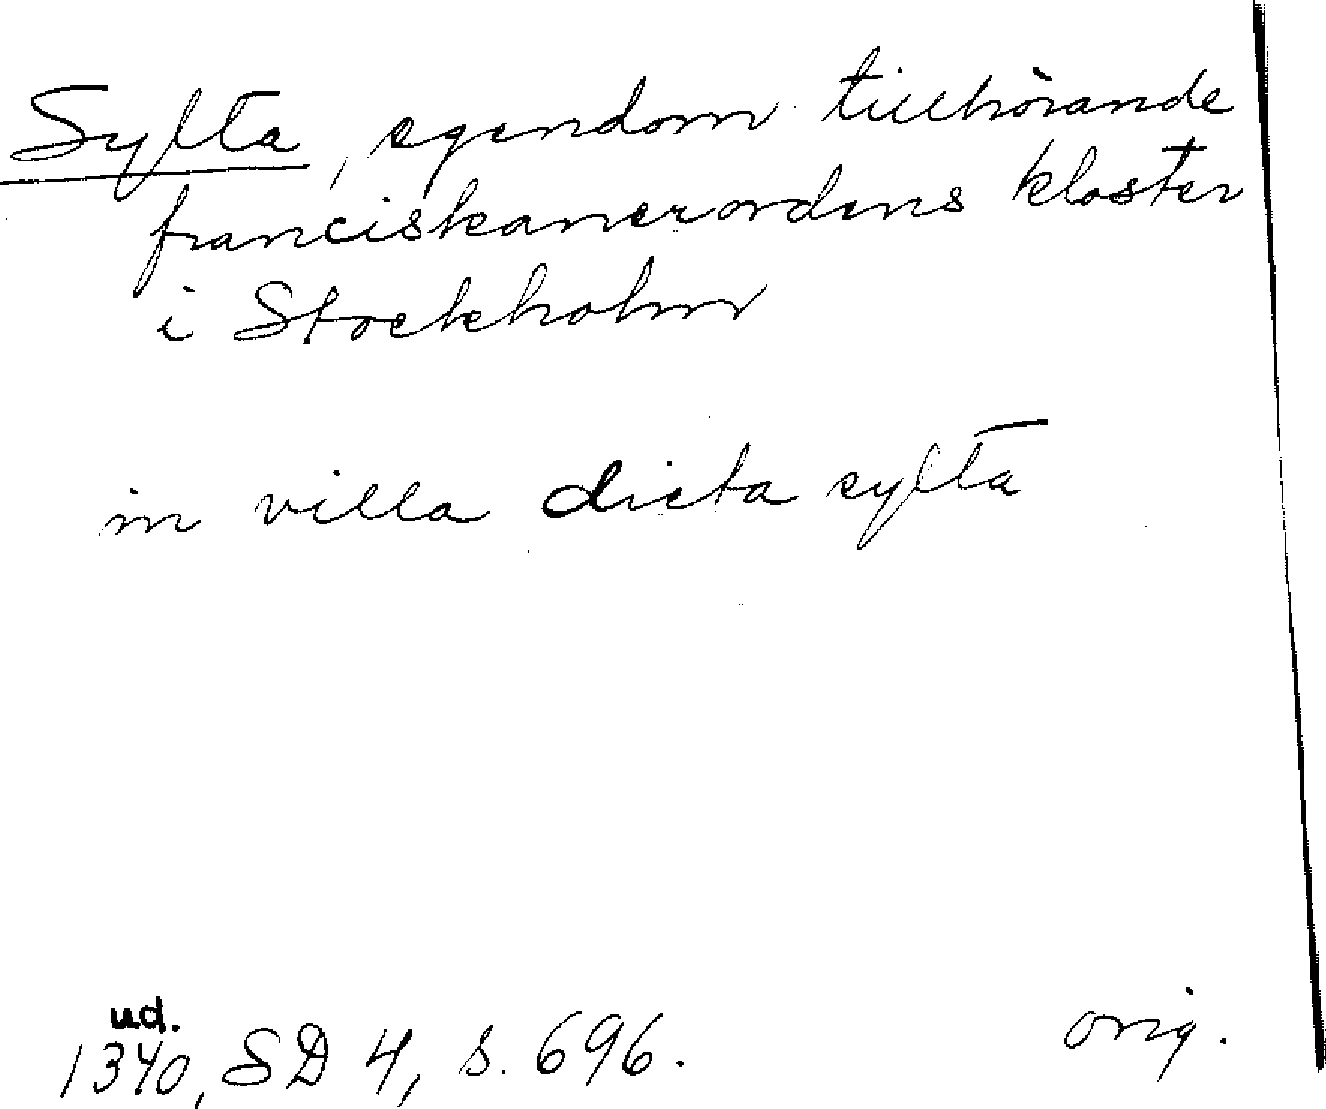 Sylta, egendom tillhörande
franciskanerordens kloster
i Stockholm
in villa dicta sylta
ud.
1340, SD 4, s. 696.
orig.